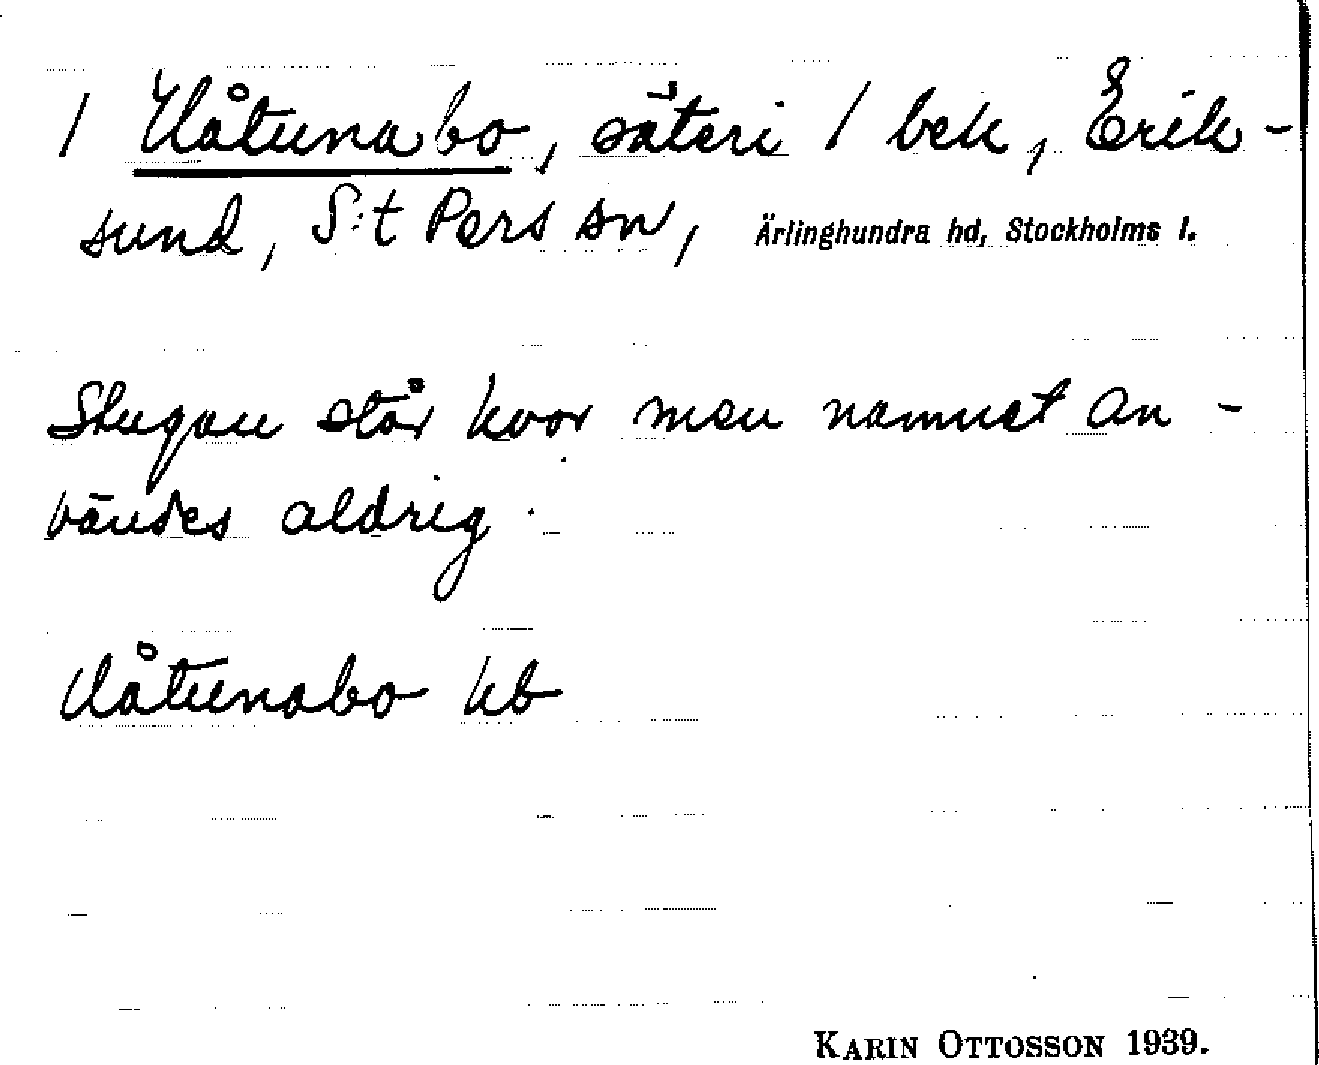 / Håtunabo, säteri / bek, Erik-
sund, S:t Pers sn, Ärlinghundra hd, Stockholms l.
Stugan står kvar men namnet an-
vändes aldrig.
Håtunabo kb
KARIN OTTOSSON 1939.